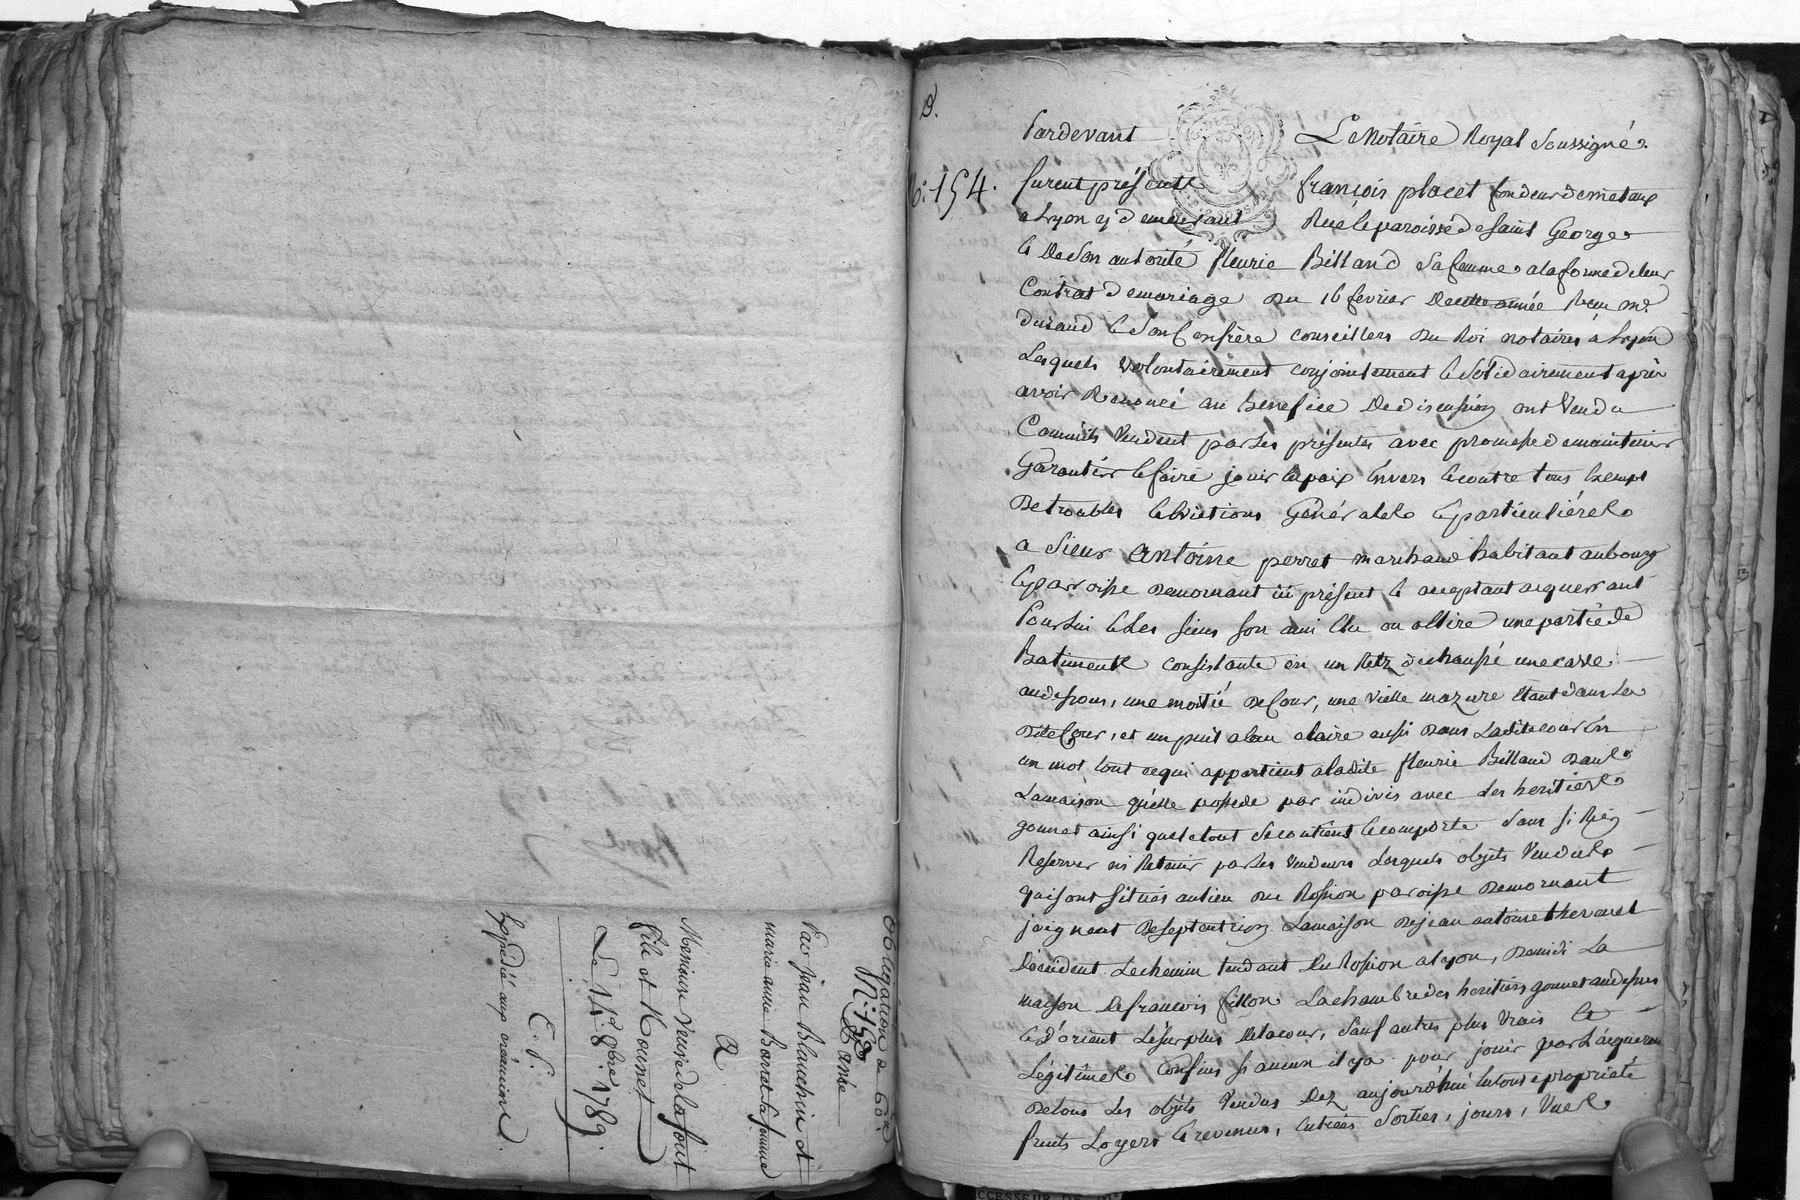 Obligation de 60#
N° 153
D'année
Par jean Blanchin et
marie anne Barret sa femme
A
Monsieur Veuve de lafont
fils et Kounet
Le 14 8bre 1789
C. P.
Expédié aux créanciers
D.
No: 154.
Pardevant Le Notaire Royal soussigné.
furent présents françois placet fondeur de metaux
a Lyon y demeurant Rue & paroisse de saint George
& De son autorité fleurie Billand sa femme a la forme de leur
Contrat de mariage du 16 fevrier De cette année reçu me.
durand & son Confrère conseillers du Roi notaires à Lyon
Lesquels volontairement conjointement & solidairement après
avoir Renoncé au benefice De discussion ont Vendu
Comme ils Vendent par les présentes avec promesse de maintenir
Garantir & faire jouir en paix Envers & contre tous Exempt
De troubles & evictions Générales & particulières
a Sieur Antoine perret marchand habitant au bourg
& paroisse de mornant ici présent & acceptant acquerrant
Pour lui & les siens son ami Elu ou a Elire une partie de
Batiments consistante en un Retz de chaussé une cave
au dessous, une moitié de Cour, une vielle mazure Etant dans la
dite Cour, et un puit a Eau claire aussi dans Ladite cour En
un mot tout ce qui appartient a ladite fleurie Billand dans
La maison qu'elle possede par indivis avec les heritiers
gonnet ainsi que le tout se contient & comporte sans si Rien
Reserver ni Retenir par les Vendeurs Lesquels objets Vendus
qui sont situés au lieu du Rossion paroisse de mornant
joignent De septentrion La maison de jean antoine thevenet
D'occident Le chemin tendant Du Rossion a Lyon, De midi La
maison De francois fillon La chambre des heritiers gonnet au dessus
& d'orient Le surplus De la cour, sauf autres plus Vrais &
Légitimes Confins si aucun il y a pour jouir par L'acquereur
De tous Les objets Vendus Dez aujourd'hui En toute propriété
fruits Loyers & revenus, Entrées Sorties, jours, Vues